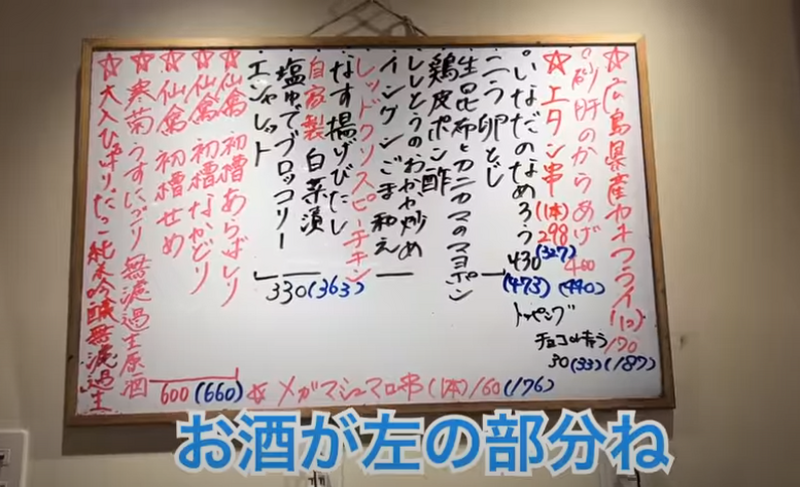 ☆広島県産カキフライ(1コ)170(187)
砂肝のからあげ400(440)
☆エタン串(1本)298(327)
・いなだのなめろう430(473)
トッピング
チョコonき方30(33)
・ニラ卵とじ
・生昆布とカニカマのマヨポン
・鶏皮ポン酢
・ししとうのおかか炒め
・インゲンごま和え
・レッドクリスピーチキン
・なす揚げびたし
・自家製白菜漬
・塩ゆでブロッコリー
・エシャレット
330(363)
☆仙禽 初槽あらばしり
☆仙禽 初槽なかどり
☆仙禽 初槽せめ
☆寒菊うすにごり 無濾過生原酒
☆大入ひめぜん 純米吟醸無濾過生
600(660)
☆メガマシュマロ串(1本)160(176)
お酒が左の部分ね